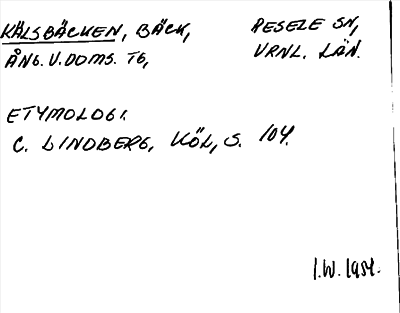 KÄLSBÄCKEN, BÄCK, RESELE SN,
ÅNG. V. DOMS. TG, VRNL. LÄN.
ETYMOLOGI.
C. LINDBERG, KÖL, S. 104.
I.W. 1954.